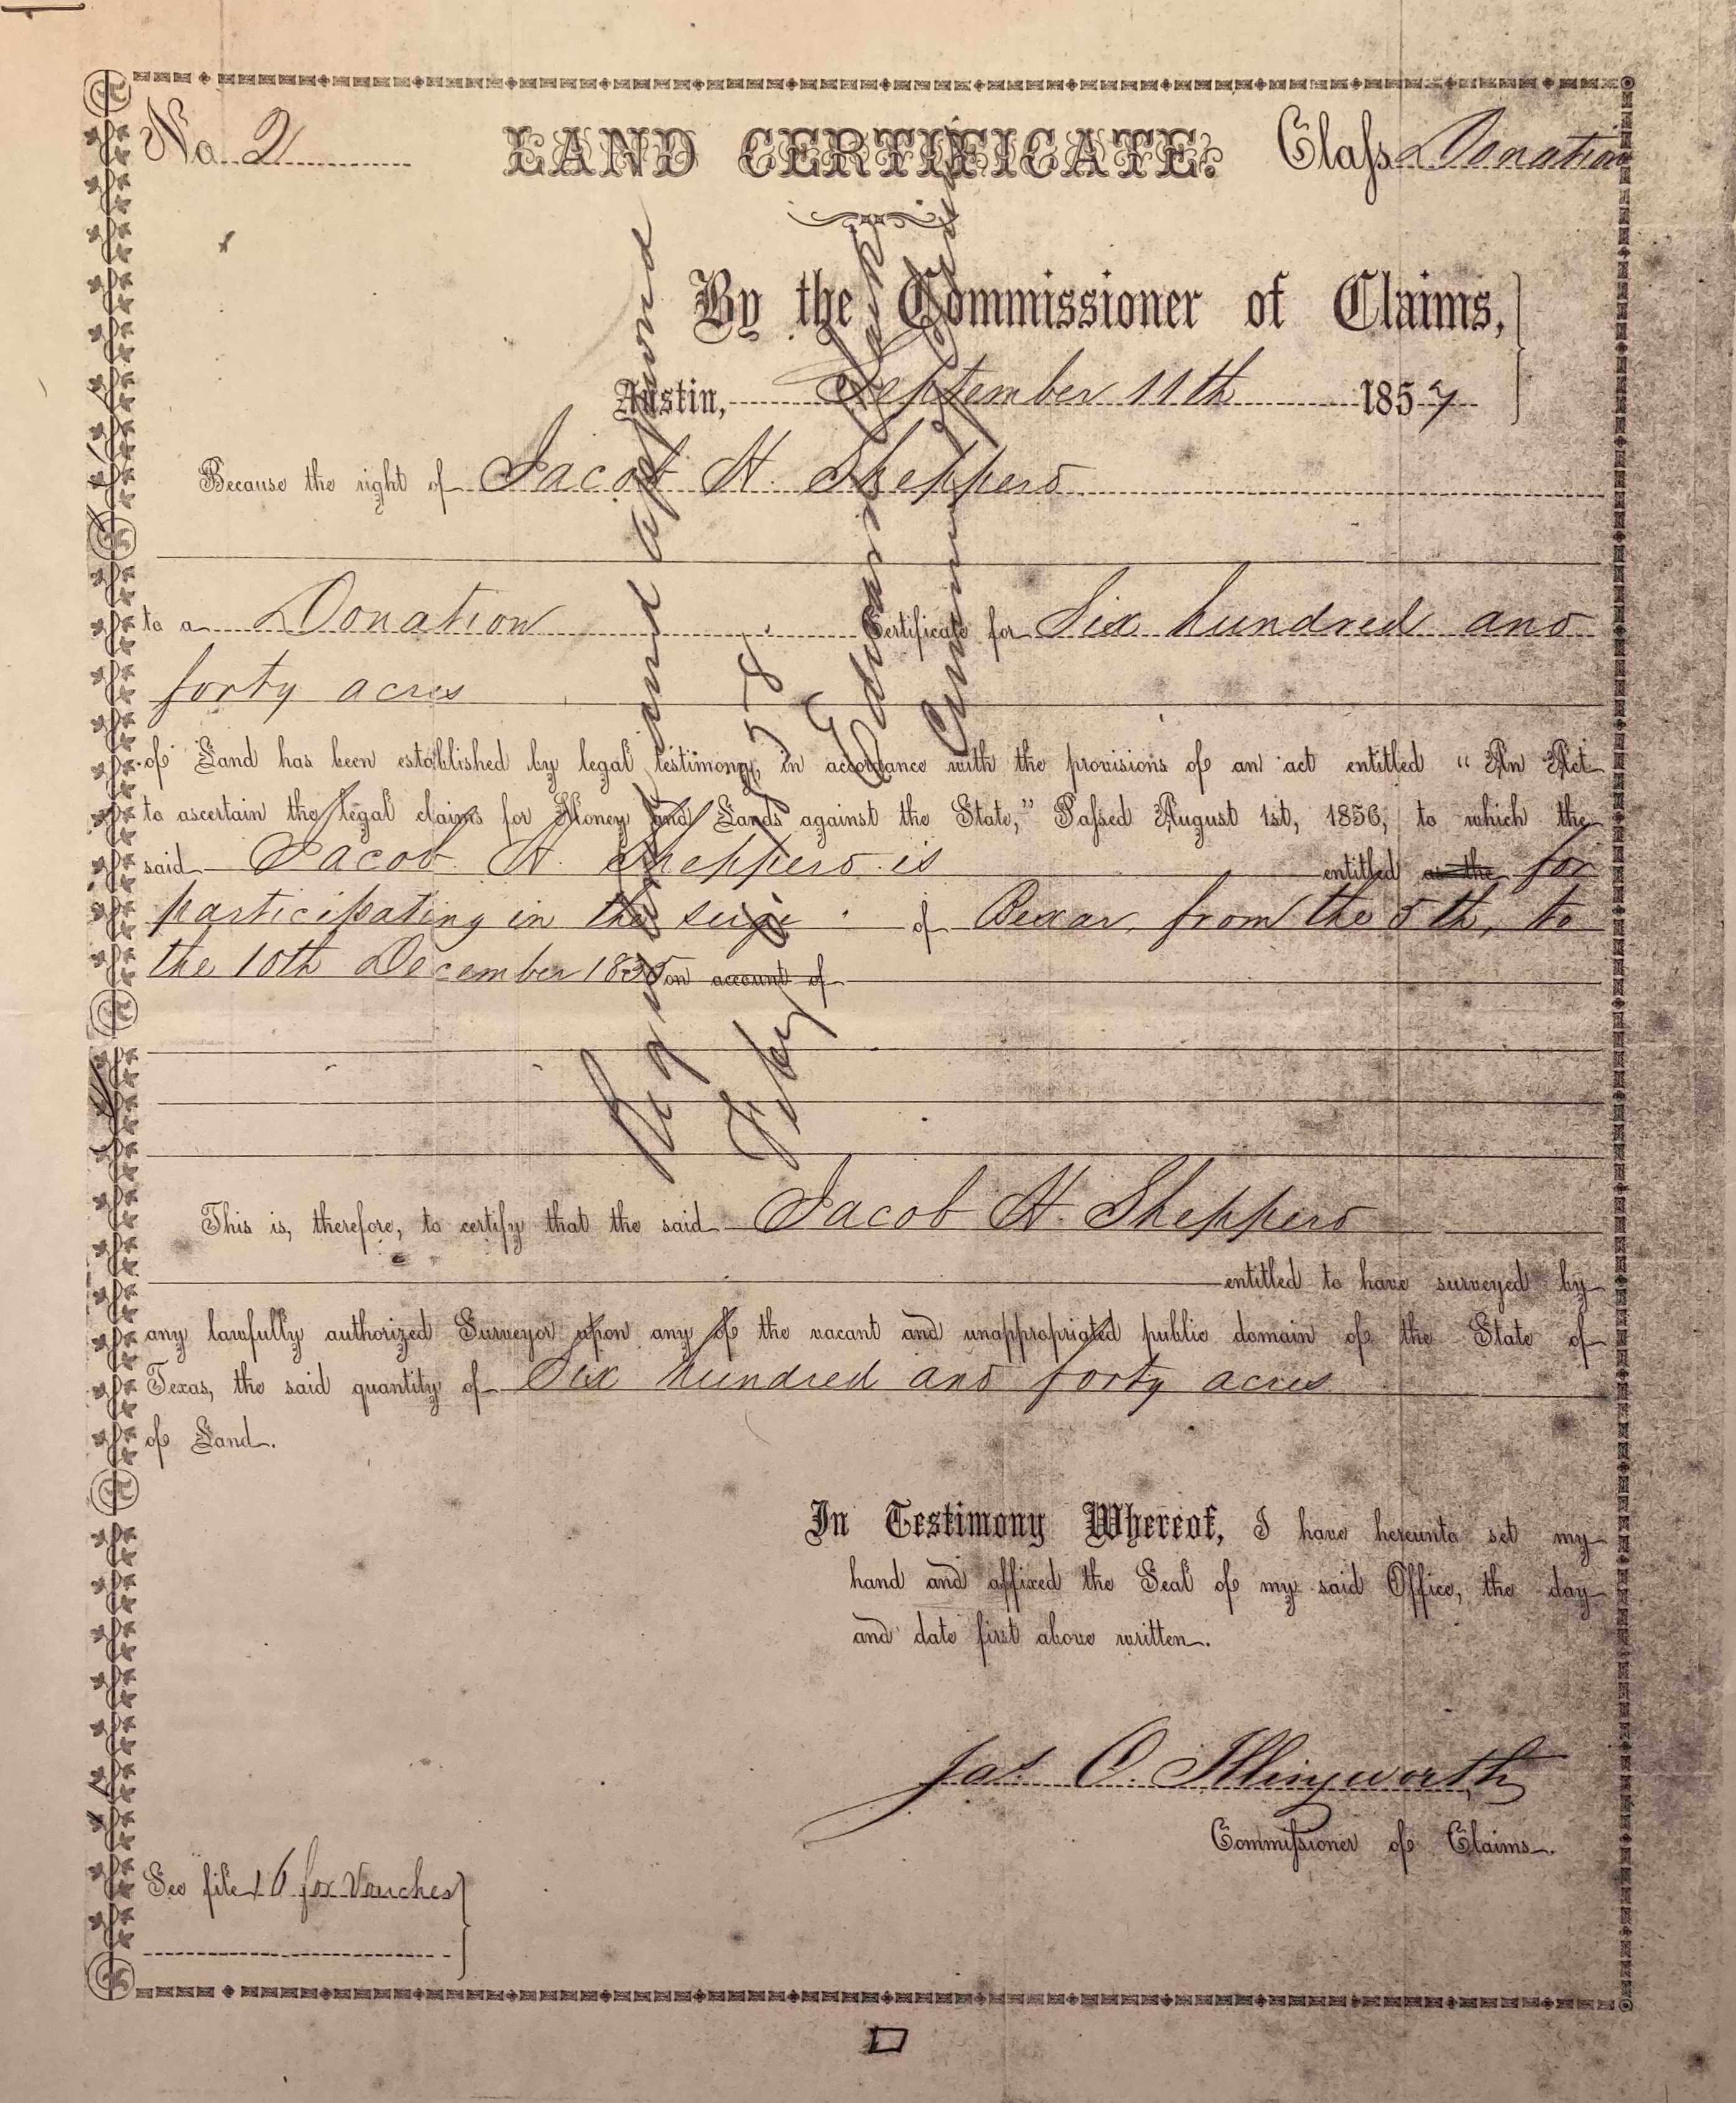 No. 2 LAND CERTIFICATE: Class Donation
By the Commissioner of Claims,
Austin, September 11th 1857
Because the right of Jacob H. Sheppers
to a Donation Certificate for Six hundred and
forty acres
of Land has been established by legal testimony, in accordance with the provisions of an act entitled “An Act
to ascertain the legal claims for Money and Lands against the State,” Passed August 1st, 1856, to which the
said Jacob H. Sheppers is entitled as the for
participating in the seige of Bexar, from the 5th, to
the 10th December 1835 on account of
This is, therefore, to certify that the said Jacob H. Sheppers
entitled to have surveyed by
any lawfully authorized Surveyor upon any of the vacant and unappropriated public domain of the State of
Texas, the said quantity of Six hundred and forty acres
of Land.
In Testimony Whereof, I have hereunto set my
hand and affixed the Seal of my said Office, the day
and date first above written.
Jas. C. Illingworth
Commissioner of Claims.
See file 16 for Vouches
and approved
Edward Clark